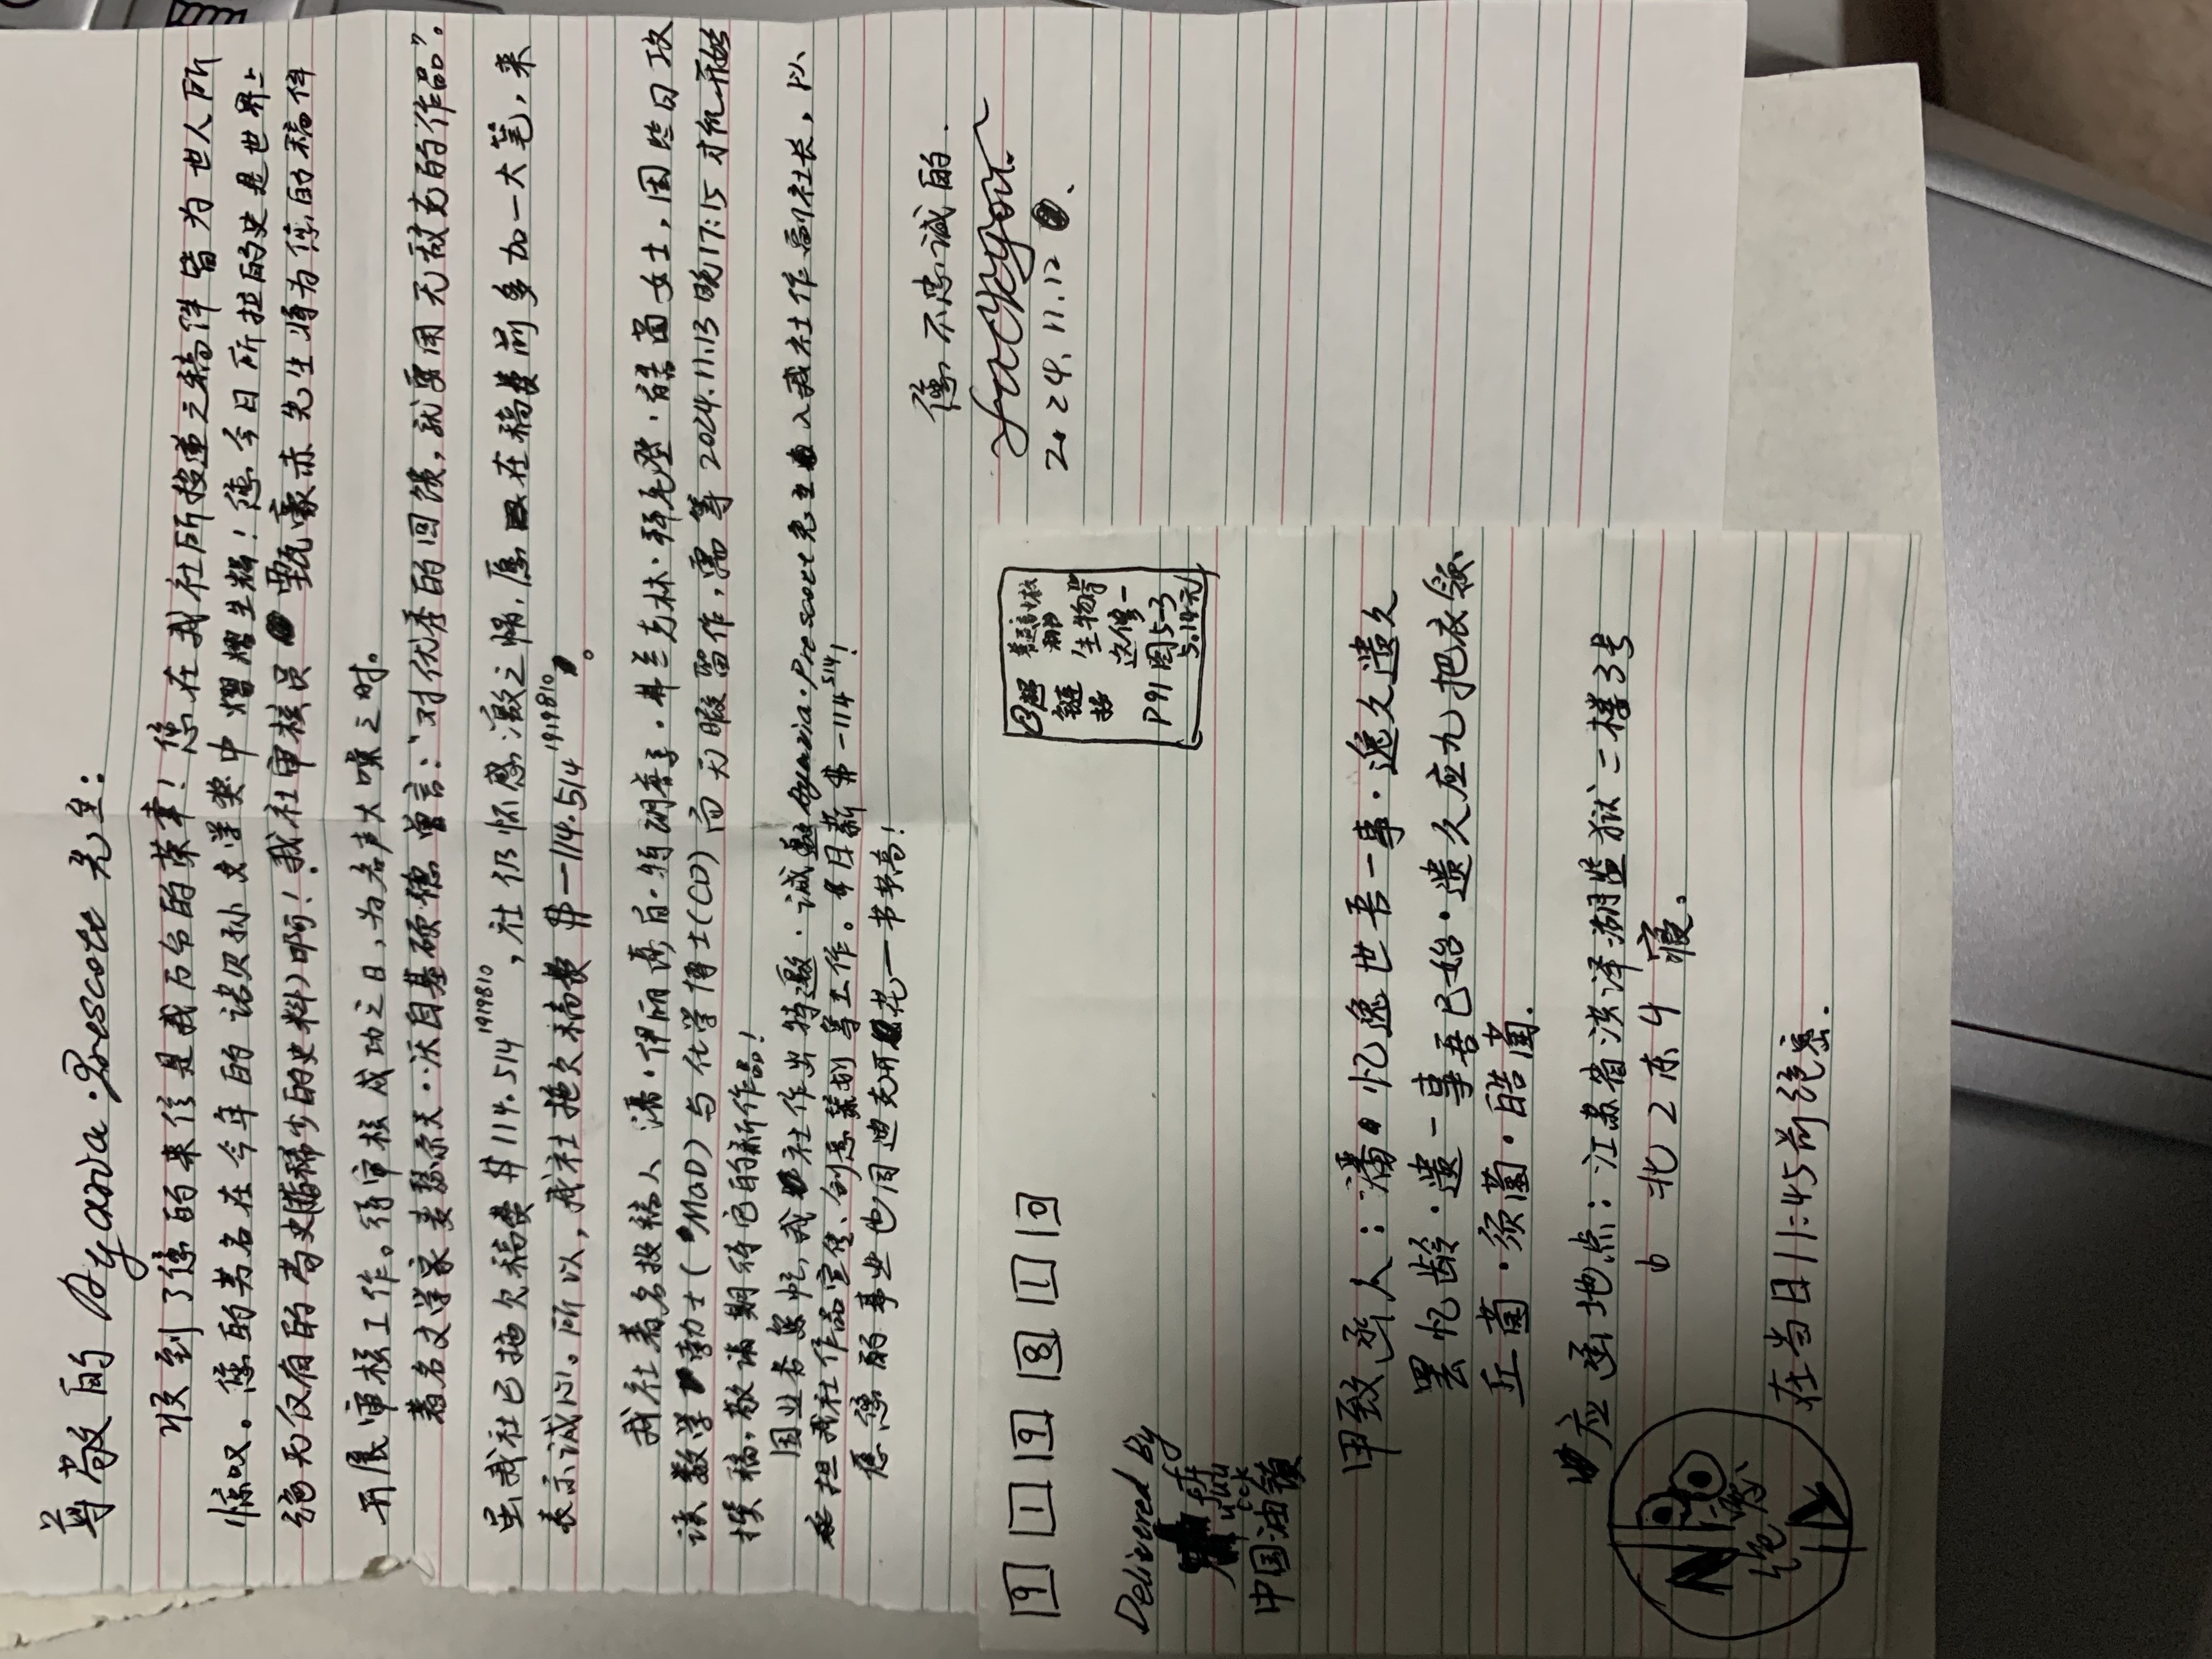 尊敬的 Ayaria·Prescott 先生:
收到了您的来信是我万分的荣幸!您在我社所投递之稿件皆为世人所
惊叹。您的芳名在今年的诺贝孙文学奖中熠熠生辉!您今日所拉的史是世界上
绝无仅有的答史(指稀少的史料)啊!我社审核员 甄豪赤先生将为您的稿件
开展审核工作。待审核成功之日,为名声大噪之时。
著名文学家麦瑟尔夫··沃自基硕德曾言:“对优秀的回馈,就要用无敌克的作品”。
虽我社已拖欠稿费 $114.514^1919810,社仍怀感激之情,愿在稿费前多加一大笔,来
表示诚心。所以,我社拖欠稿费 $-114.514^1919810。
我社著名投稿人 潘·伊丽·特·弗兰克林·拜毛登·皓菌女士,因些日攻
读数学勃士(MaD)与化学博士(CD)而无暇留作,需等2024.11.13晚17:15才机开始
撰稿,敬请期待它的新作品!
因业务繁忙,我社作出特邀·诚邀Ayaria·Prescott先生入我社作副社长,以
担我社作品宣传、创意策划等工作。日薪 $-114^514!
愿您的事业也同迪克开花一书节高!
您不忠诚的.
fuckyou.
2024.11.12
9 1 9 8 1 0
超链接
生物学
选修一
P91 图5-3
5.14元
Delivered By
中国油镇
甲致函人:潘·忆逸世吾一事·逸久遗久
罢忆龄·遗一事吾已始·遗久应九把衣领
丘菌·须菌·皓菌.
应函地点:江苏省洪泽湖监狱二楼3号
6 北2东4 寝。
绝密
在当日11:45前绝密.